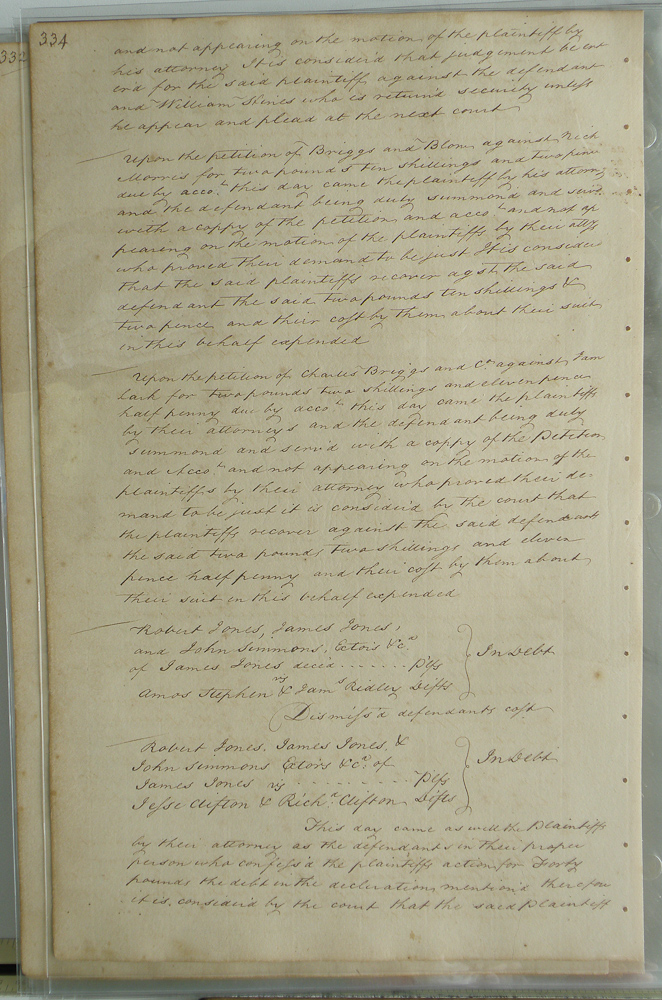 334
332
and not appearing on the motion of the plaintiff by
his attorney It is consider'd that judgement be ent
er'd for the said plaintiff against the defendant
and William Hines who is return'd security unless
he appear and plead at the next court
Upon the petition of Briggs and Blow against Nich
Morris for two pounds ten shillings and two pence
due by acco.t this day came the plaintiff by his attorny
and the defendant being duly summond and serv'd
with a coppy of the petition and acco.t and not ap
pearing on the motion of the plaintiffs by their atty
who proved their demand to be just It is consider'd
that the said plaintiffs recover agst the said
defendant the said two pounds ten shillings &
two pence and their cost by them about their suit
in this behalf expended
Upon the petition of Charles Briggs and Co. against Jam
Lark for two pounds two shillings and eleven pence
half penny due by acco.t this day came the plaintiffs
by their attorneys and the defendant being duly
summond and serv'd with a coppy of the Petition
and Acco.t and not appearing on the motion of the
plaintiffs by their attorney who proved their de
mand to be just it is consider'd by the court that
the plaintiffs recover against the said defendant
the said two pounds two shillings and eleven
pence half penny and their cost by them about
their suit in this behalf expended
Robert Jones, James Jones,
and John Simmons, Ectors &c.a
of James Jones deced ....... Plfs
vs
Amos Stephen & Jam.s Ridley Defts
In Debt
Dismiss'd defendants cost
Robert Jones, James Jones, &
John Simmons Ectors &c.a of
James Jones vs .......... Plfs
Jesse Clifton & Rich.d Clifton Defts
In Debt
This day came as well the Plaintiffs
by their attorney as the defendants in their proper
person who confess'd the plaintiffs action for Forty
pounds the debt in the declaration mention'd therefore
it is consider'd by the court that the said Plaintiff